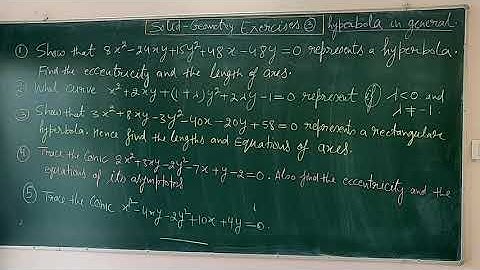 Solid-Geometry Exercises ③ hyperbola in general.
① Show that 8x²-24xy+15y²+48x-48y=0 represents a hyperbola.
Find the eccentricity and the length of axes.
② What curve x²+2xy+(1+λ)y²+2λy-1=0 represent if λ<0 and λ≠-1.
③ Show that 3x²+8xy-3y²-40x-20y+58=0 represents a rectangular
hyperbola. Hence find the lengths and Equations of axes.
④ Trace the Conic 2x²+3xy-2y²-7x+y-2=0. Also find the eccentricity and the
equations of its asymptotes
⑤ Trace the Conic x²-4xy-2y²+10x+4y=0.